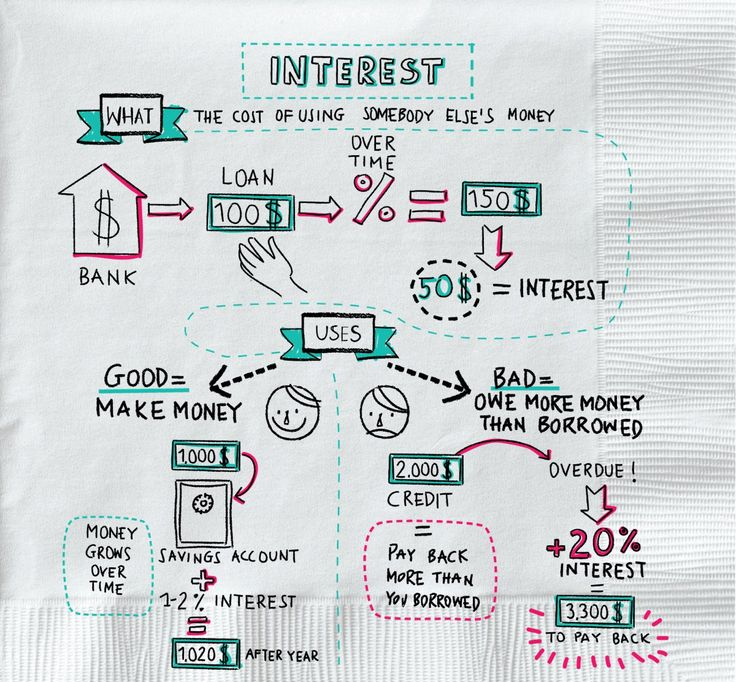 INTEREST
WHAT
THE COST OF USING SOMEBODY ELSE'S MONEY
BANK
$
LOAN
100$
OVER
TIME
%
=
150$
50$ = INTEREST
USES
GOOD=
MAKE MONEY
BAD=
OWE MORE MONEY
THAN BORROWED
1,000$
SAVINGS ACCOUNT
+
1-2% INTEREST
=
1,020$ AFTER YEAR
MONEY
GROWS
OVER
TIME
2.000$
CREDIT
=
PAY BACK
MORE THAN
YOU BORROWED
OVERDUE!
+20%
INTEREST
=
3,300$
TO PAY BACK